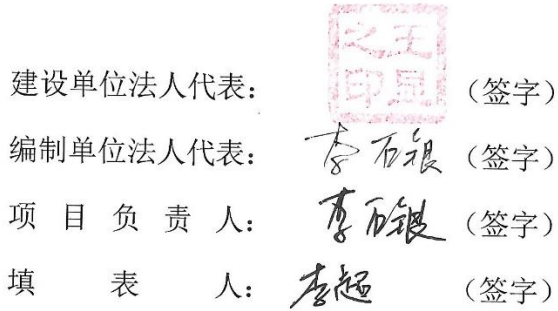 建设单位法人代表： 王显之印 （签字）
编制单位法人代表： 李石银 （签字）
项目负责人： 李石银 （签字）
填表人： 李超 （签字）